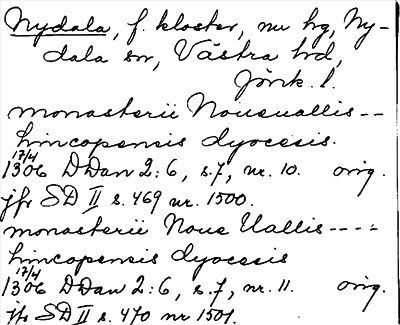 Nydala, f. kloster, nu hg, Ny-
dala sn, Västra hd,
Jönk. l.
monasterii Noueuallis --
lincopensis dyocesis.
17/4
1306 DDan 2:6, s. 7, nr. 10. orig.
jfr SD II s. 469 nr. 1500.
monasterii Noue Uallis ----
lincopensis dyocesis
17/4
1306 DDan 2:6, s. 7, nr. 11. orig.
jfr SD II s. 470 nr 1501.